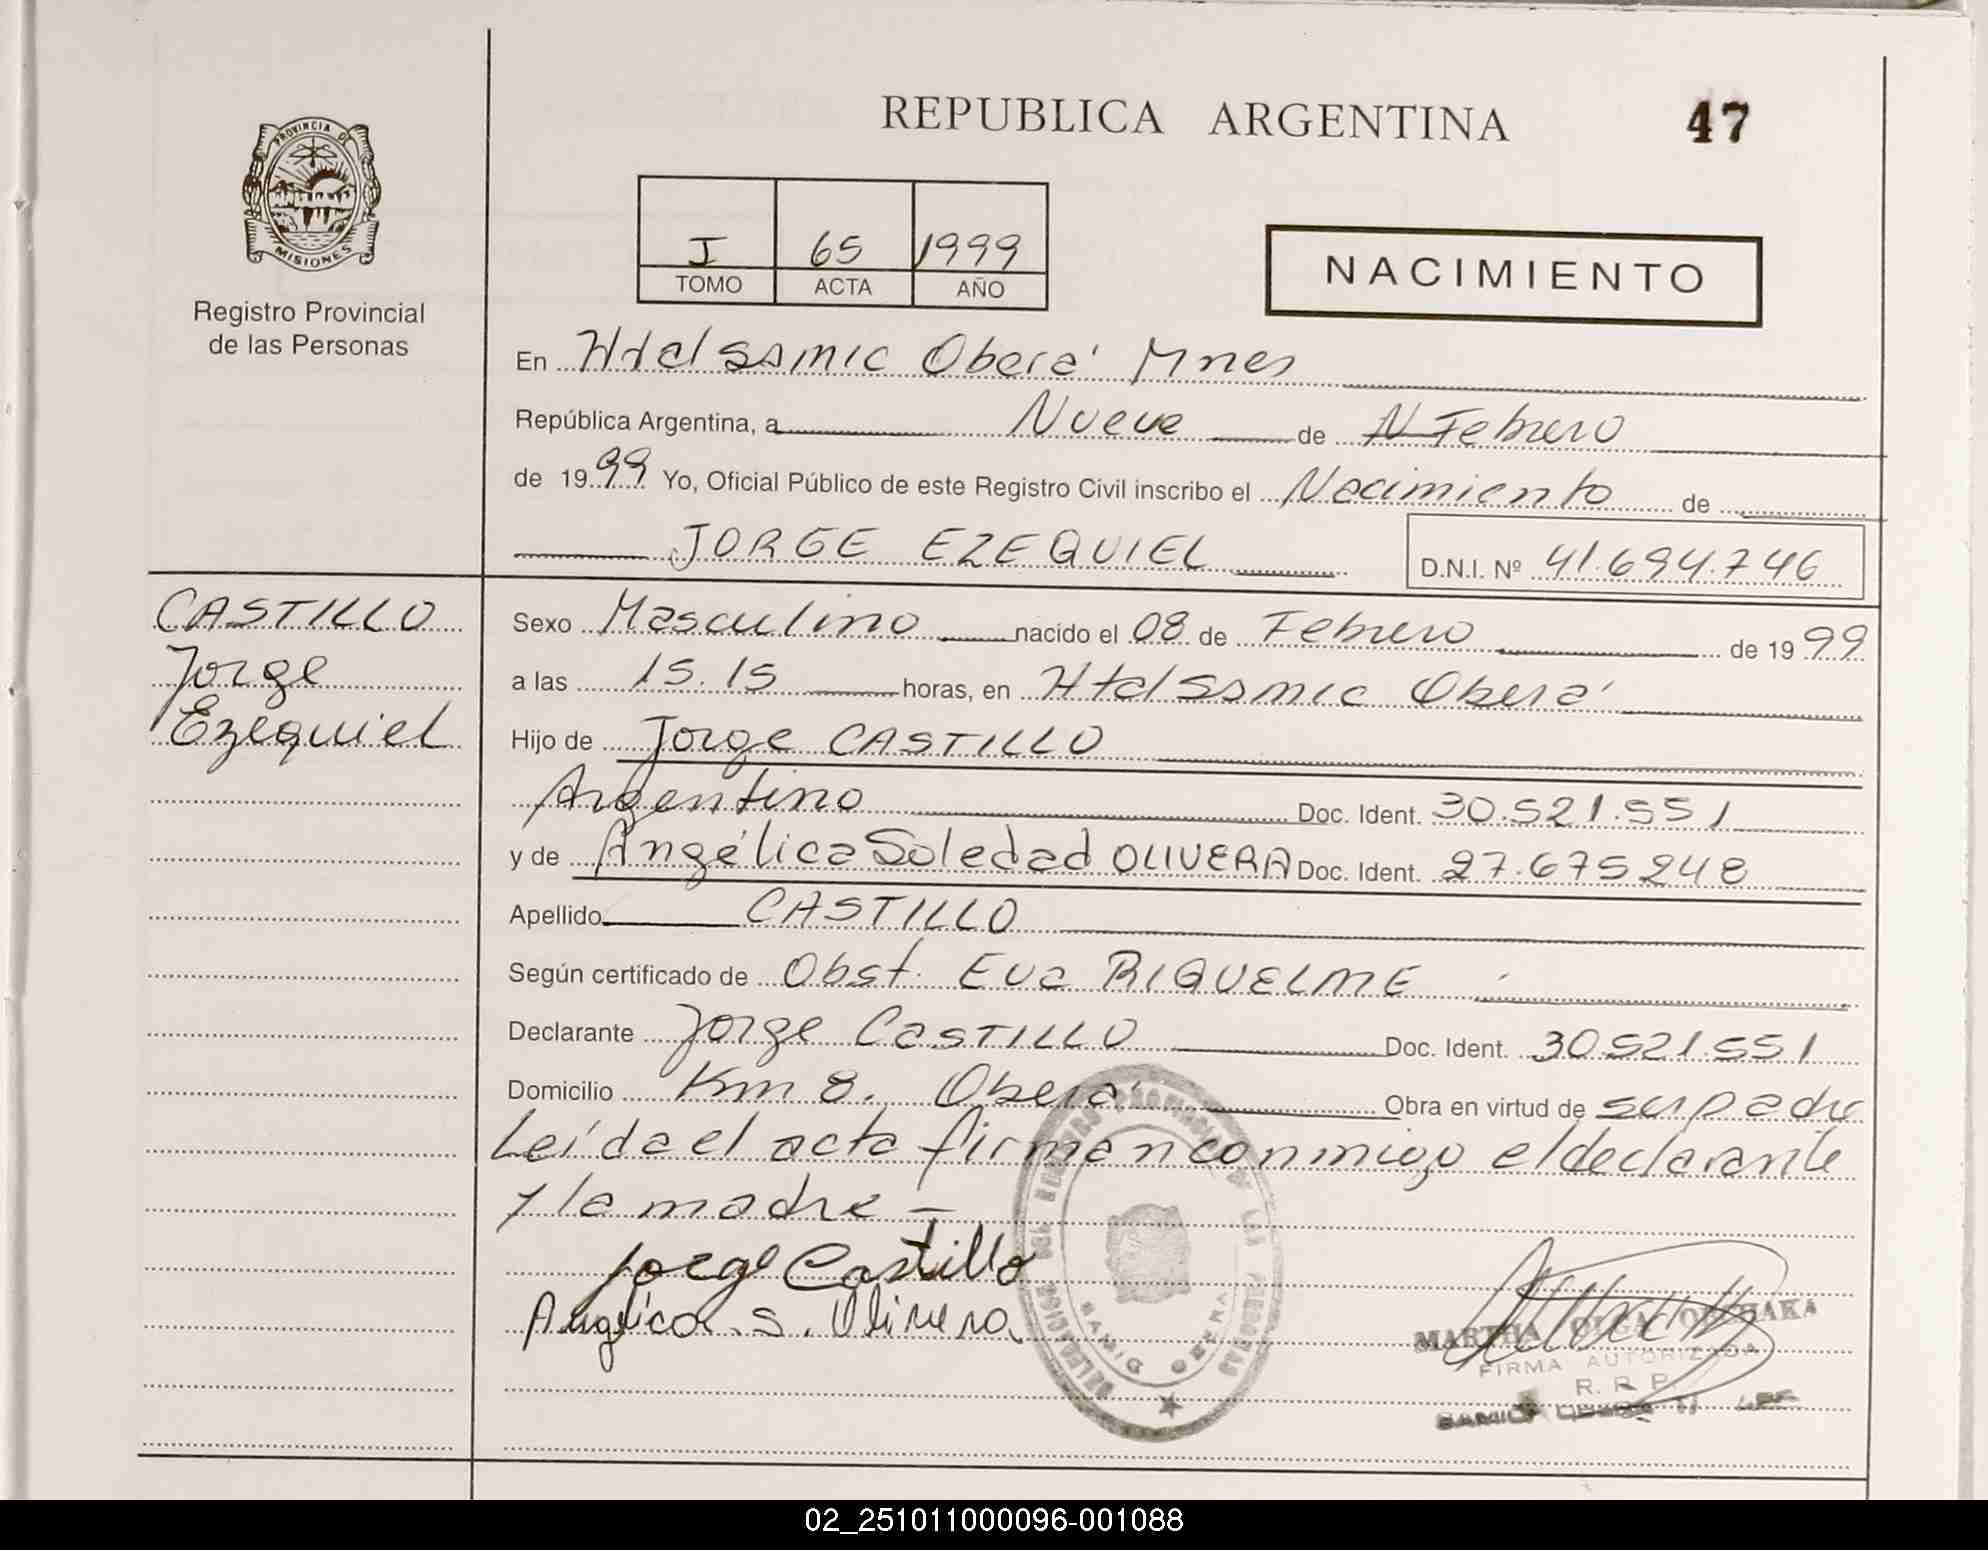 REPUBLICA ARGENTINA 47
PROVINCIA DE
MISIONES
Registro Provincial
de las Personas
I 65 1999
TOMO ACTA AÑO
NACIMIENTO
En Htal SAMIC Oberá Mnes
República Argentina, a Nueve de Febrero
de 1999 Yo, Oficial Público de este Registro Civil inscribo el Nacimiento de
JORGE EZEQUIEL D.N.I. Nº 41.694.746
CASTILLO
Jorge
Ezequiel
Sexo Masculino nacido el 08 de Febrero de 1999
a las 15.15 horas, en Htal Samic Oberá
Hijo de Jorge CASTILLO
Argentino Doc. Ident. 30.521.551
y de Angélica Soledad OLIVERA Doc. Ident. 27.675248
Apellido CASTILLO
Según certificado de Obst. Eva RIQUELME
Declarante Jorge CASTILLO Doc. Ident. 30521.551
Domicilio Km 8. Oberá Obra en virtud de ser padre
Leída el acta firman conmigo el declarante
y la madre –
Jorge Castillo
Angélica . S . Olivera
MARTHA OLGA
FIRMA AUTORIZADA
R. R. P.
SAMIC
02_251011000096-001088